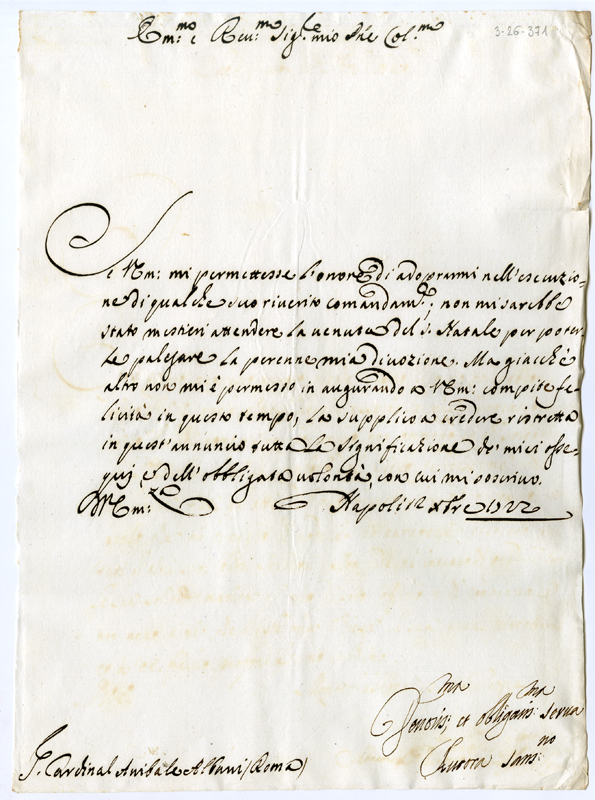 Em:mo e Reu:mo Sig:re mio P̃ne Col:mo
3-26-371
Se V Em: mi permettesse l'onore di adoprarmi nell'esecuzio-
ne di qualche suo riuerito comandam:to, non mi sarebbe
stato mestieri attendere la uenuta del S. Natale per poter-
le palesare la perenne mia diuozione. Ma giacchè
altro non mi è permesso in augurando a V Em: compite fe-
licità in questo tempo, la supplico a credere ristretta
in quest'annuncio tutta la significazione de' miei osse-
quj, e dell'obbligata uolontà, con cui mi soscriuo.
V Em: Napoli 12 Xbre 1722
Deuotis:ma, et obligatis:ma serua
Aurora San:no
S. Cardinal Anibale Albani (Roma)